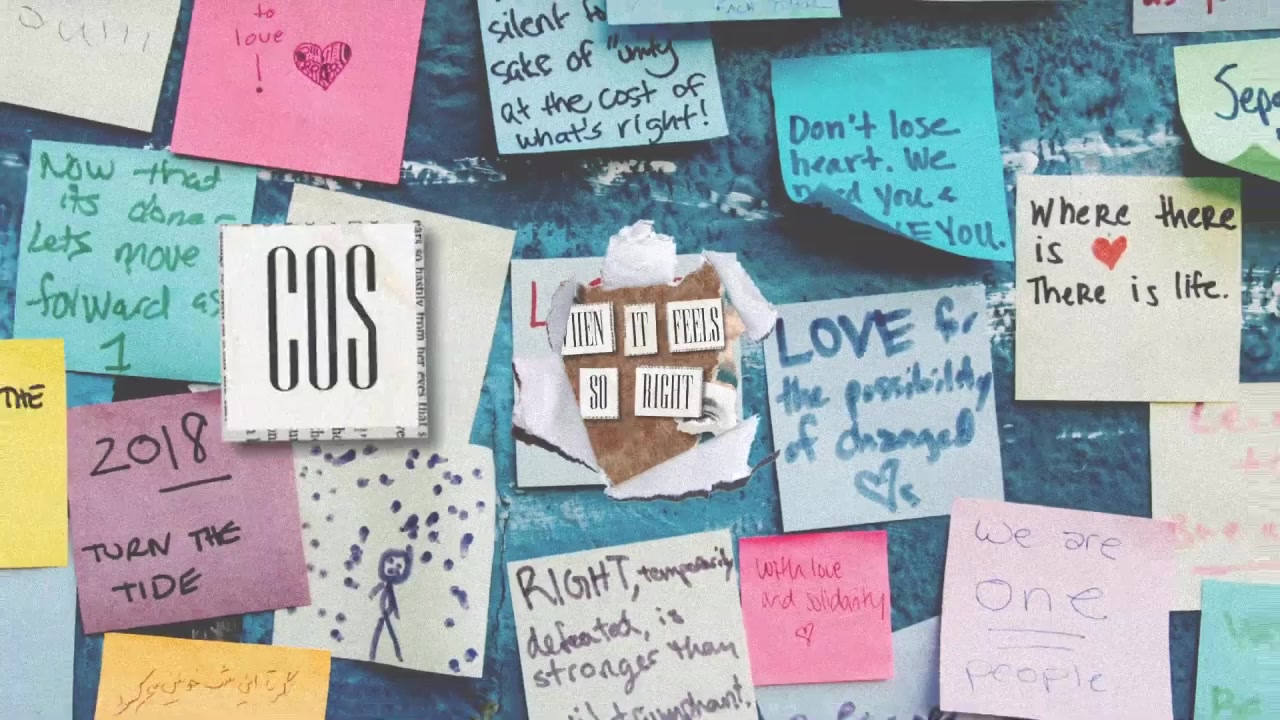 to
love
!
silent for
sake of "unity
at the cost of
what's right!
Don't lose
heart. We
need you &
LOVE YOU.
Where there
is
There is life.
Now that
its done
Lets move
forward as
1
COS
WHEN IT FEELS
SO RIGHT
LOVE for
the possibility
of change
THE
2018
TURN THE
TIDE
RIGHT, temporarily
defeated, is
stronger than
triumphant.
with love
and solidarity
We are
One
people